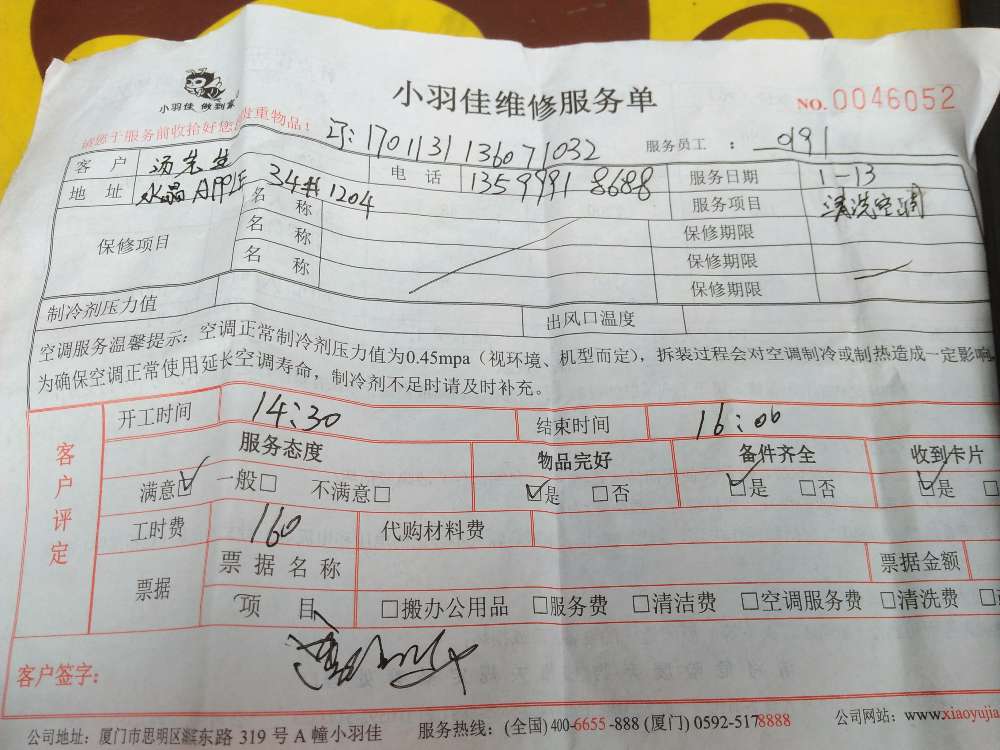 小羽佳 做到家
小羽佳维修服务单
NO.0046052
请您于服务前收拾好您的贵重物品！
订:1701131136071032
服务员工 : 0191
客户 汤先生 电话 13599918688 服务日期 1-13
地址 水晶APPLE 34#1204 服务项目 清洗空调
保修项目
名称 保修期限
名称 保修期限
名称 保修期限
制冷剂压力值 出风口温度
空调服务温馨提示：空调正常制冷剂压力值为0.45mpa（视环境、机型而定），拆装过程会对空调制冷或制热造成一定影响
为确保空调正常使用延长空调寿命，制冷剂不足时请及时补充。
客户评定
开工时间 14:30 结束时间 16:00
服务态度 物品完好 备件齐全 收到卡片
满意☑ 一般□ 不满意□ ☑是 □否 ☑是 □否 ☑是 □
工时费 160 代购材料费
票据 票据名称 票据金额
项目 □搬办公用品 □服务费 □清洁费 □空调服务费 □清洗费 □
客户签字：
公司地址：厦门市思明区 东路 319 号 A 幢小羽佳 服务热线：(全国) 400-6655-888 (厦门) 0592-5178888 公司网站：www.xiaoyujia